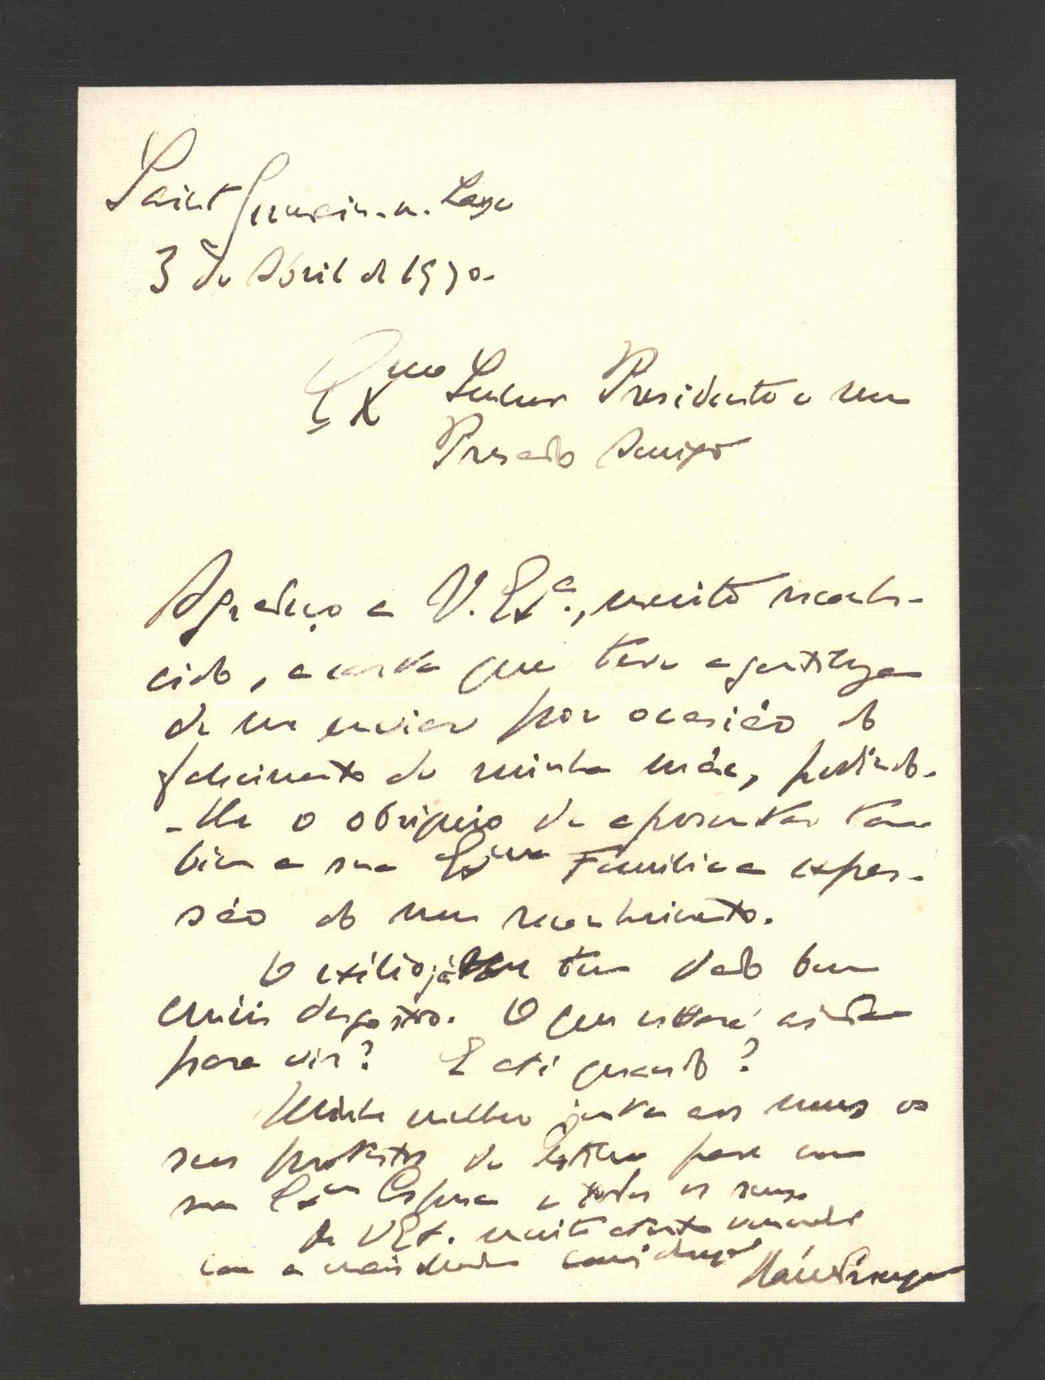 Saint Germain-en-Laye
3 de Abril de 1970.
Exmo Senhor Presidente e meu
Presado Amigo
Agradeço a V. Exª., muito reconhe-
cido, a carta que teve a gentileza
de me enviar por ocasião do
falecimento de minha mãe, pedindo-
-lhe o obséquio de apresentar tam
bém a sua Exma Família a expres-
são do meu reconhecimento.
O exílio já me tem dado bem
cruéis desgostos. O que estará ainda
para vir? E até quando?
Minha mulher junta aos meus os
seus protestos de estima para com
sua Exma Esposa e todos os seus
De V Ex. muito atento venerador
com a mais elevada consideração